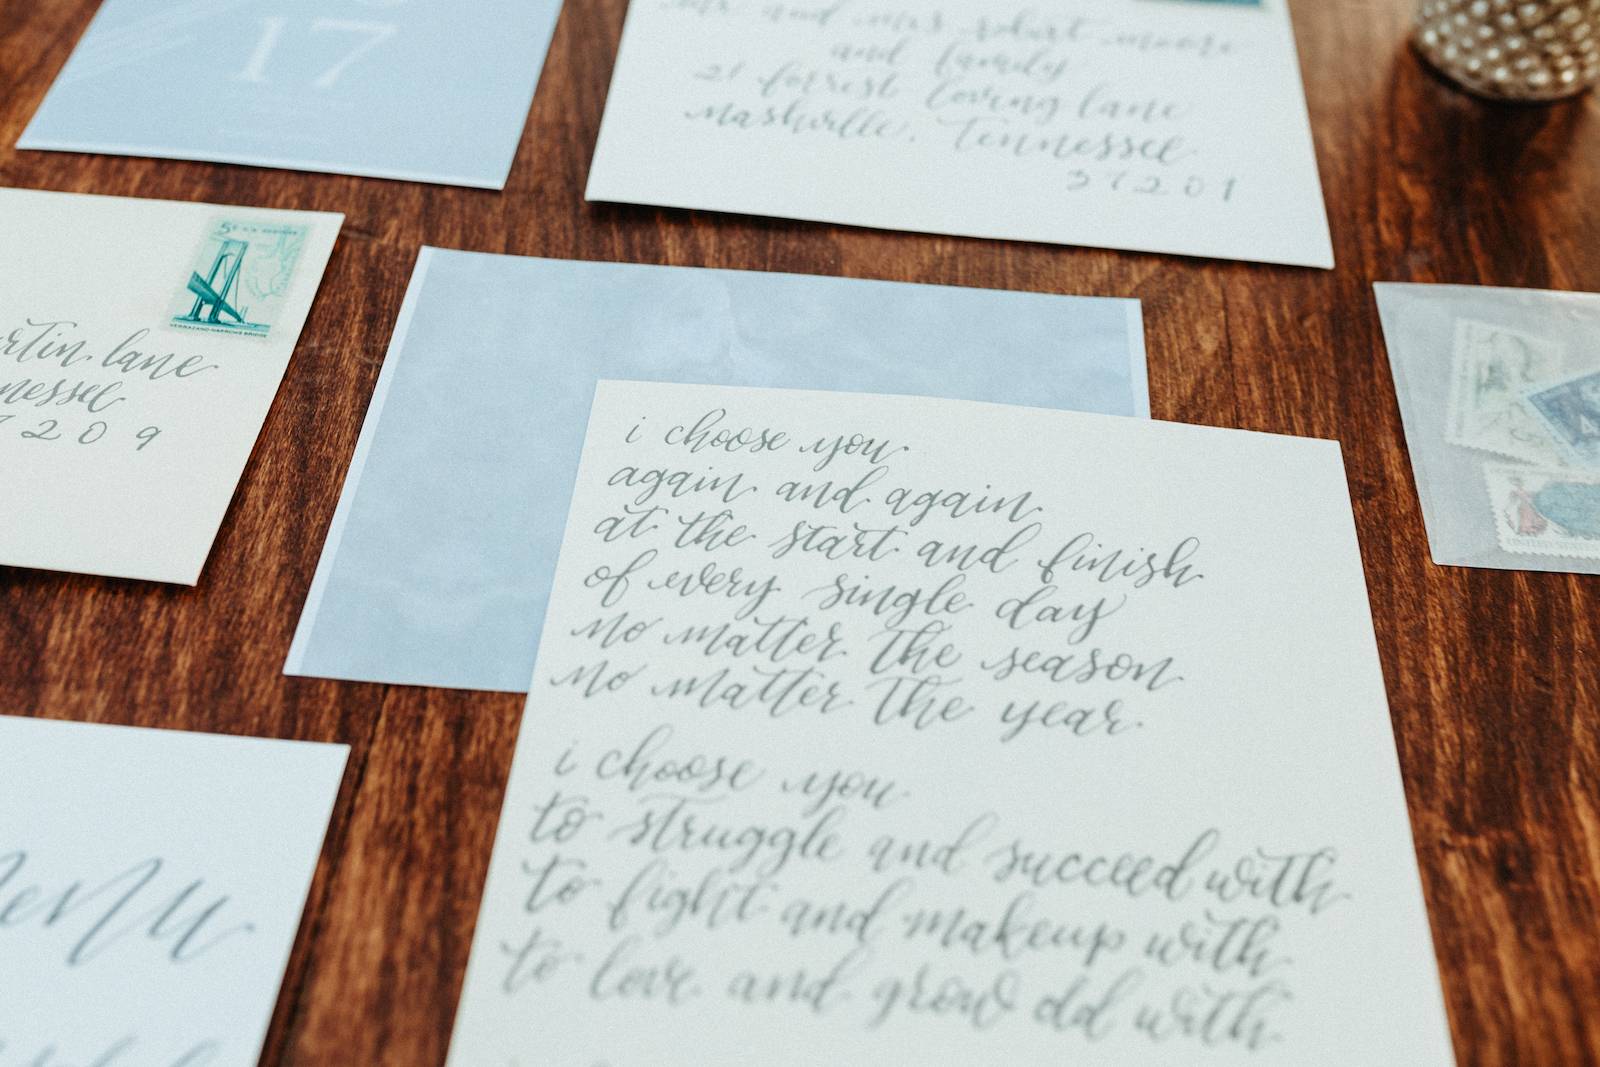 17
mr. and mrs. robert moore
and family
21 forrest loving lane
nashville, tennessee
37201
5¢ U.S. POSTAGE
VERRAZANO-NARROWS BRIDGE
rtin lane
nessee
7209
i choose you
again and again
at the start and finish
of every single day
no matter the season
no matter the year
i choose you
to struggle and succeed with
to fight and makeup with
to love and grow old with
menu